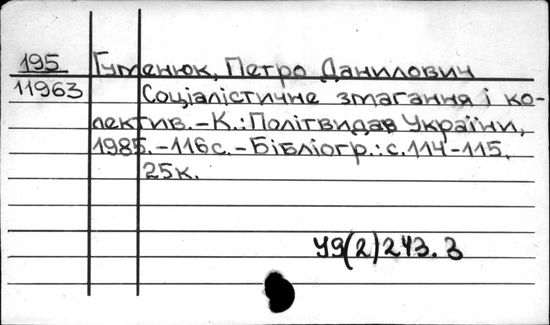 195 Гуменюк, Петро Данилович
11963 Соціалістичне змагання і ко-
лектив.-К.:Політвидав України,
1985.-116с.-Бібліогр.:с.114-115.
25к.
У9(2)243.3